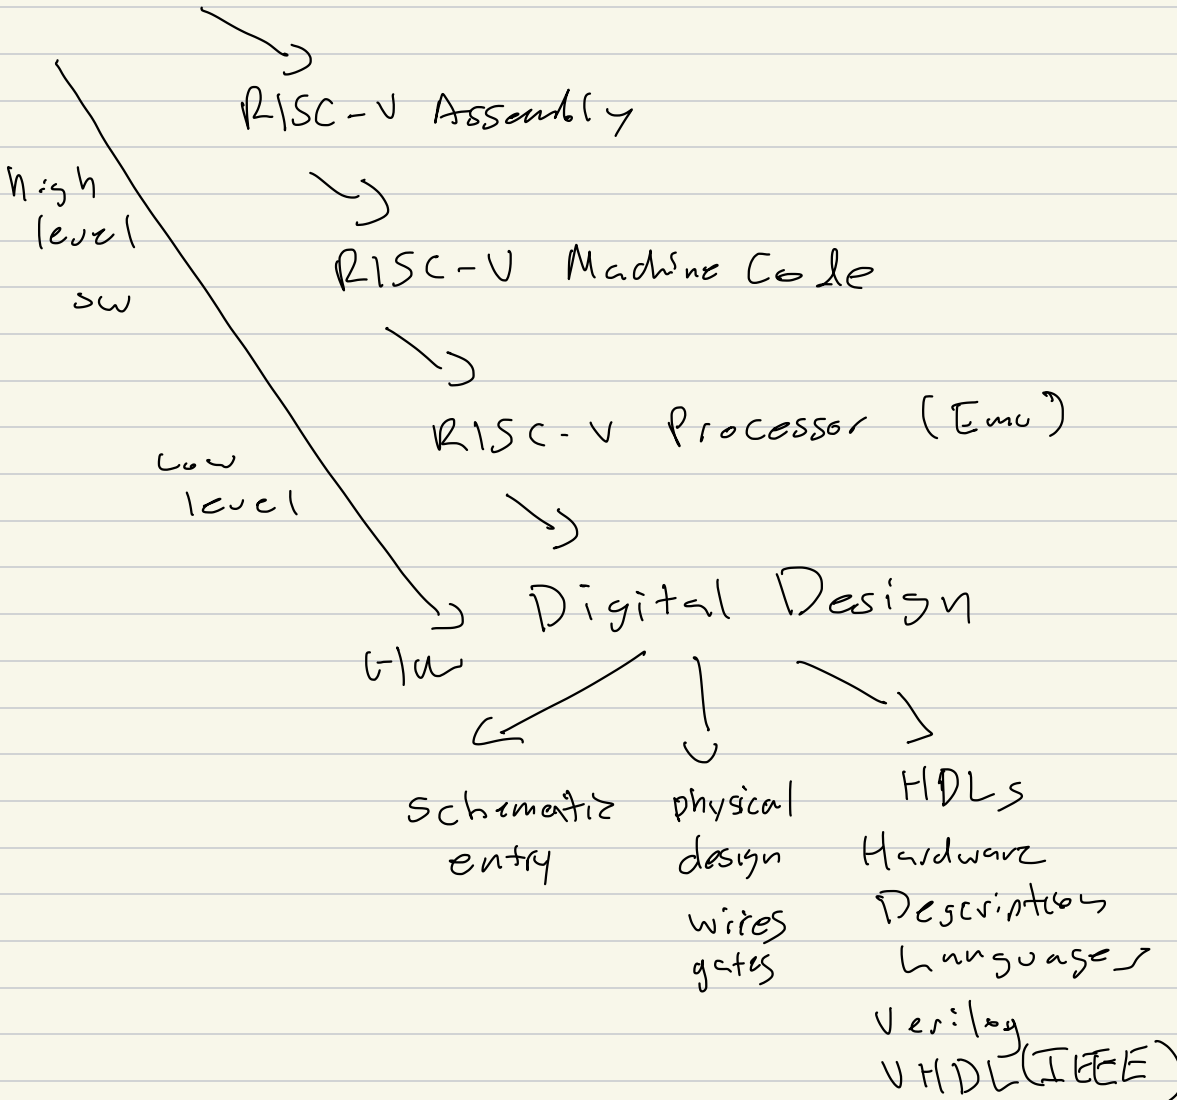 RISC-V Assembly
high
level
SW
RISC-V Machine Code
RISC-V Processor (Emu)
Low
level
Digital Design
H/W
schematic
entry
physical
design
wires
gates
HDLs
Hardware
Description
Languages
Verilog
VHDL (IEEE)